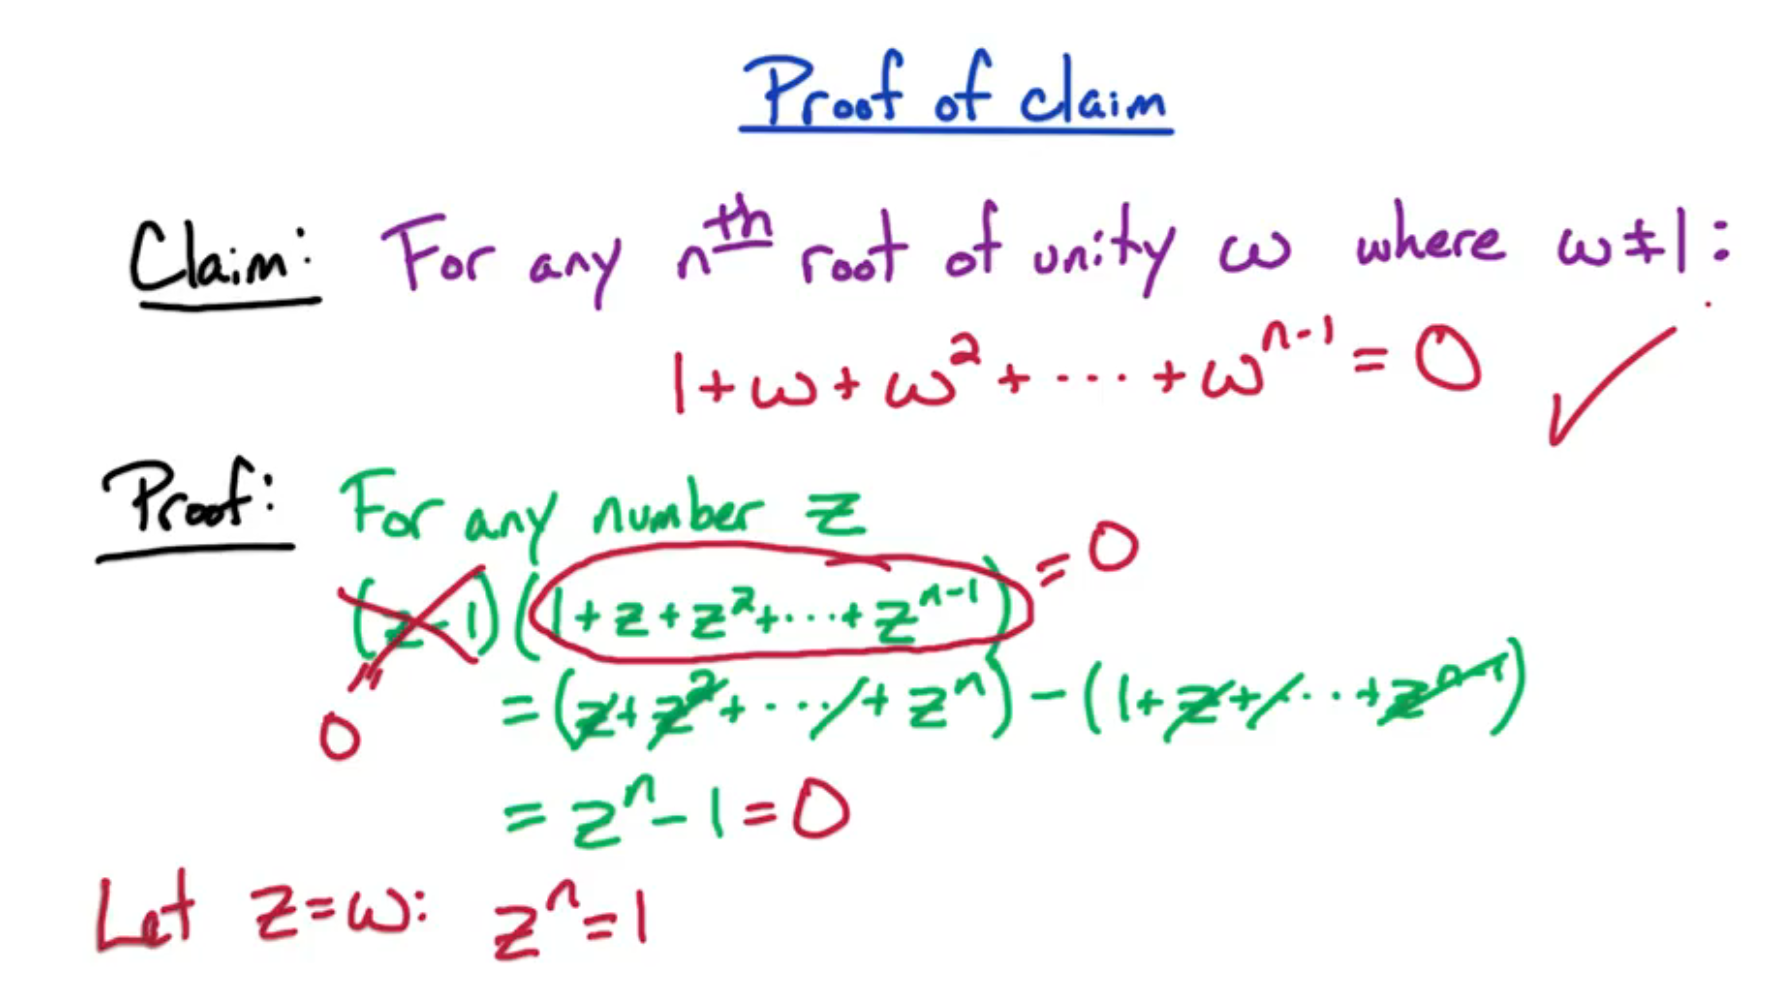 Proof of claim
Claim: For any nth root of unity ω where ω≠1:
1+ω+ω²+⋯+ωⁿ⁻¹=0 ✓
Proof: For any number z
(z-1)(1+z+z²+⋯+zⁿ⁻¹)=0
0
=(z+z²+⋯+zⁿ)-(1+z+⋯+zⁿ⁻¹)
=zⁿ-1=0
Let z=ω: zⁿ=1